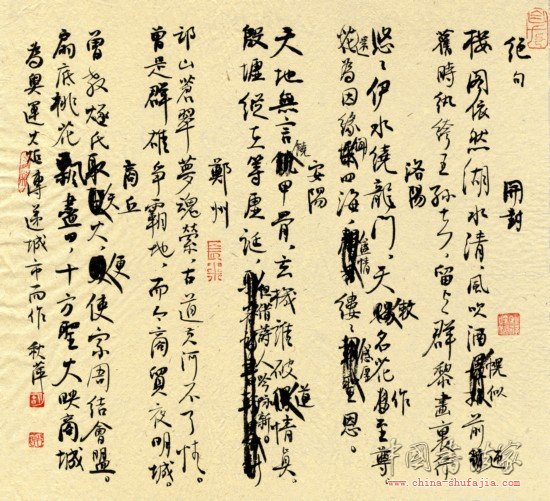 絕句 開封
樓閣依然湖水清。風吹酒幌似前
舊時紈絝王孫去。留與群黎畫裏行
洛陽
悠悠伊水繞龍門。天教名花作至尊
花為因緣四海。縷縷恩。
安陽
天地無言饒甲骨。玄機誰破道情真。
殷墟縱在等塵埃。但借前人吟詠新。
鄭州
邙山蒼翠夢魂縈。古道黃河不了情。
曾是群雄爭霸地。而今商貿夜明城。
商丘
曾教燧氏取天火。便使宗周結會盟。
扇底桃花飄盡日。十方聖火映商城
為奧運火炬傳遞城市而作 秋萍
中國書法家
www.china-shufajia.com